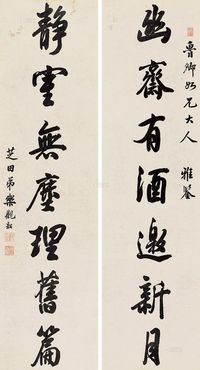 魯卿如兄大人 雅鑒
幽齋有酒邀新月
靜室無塵理舊篇
芝田弟樂觀